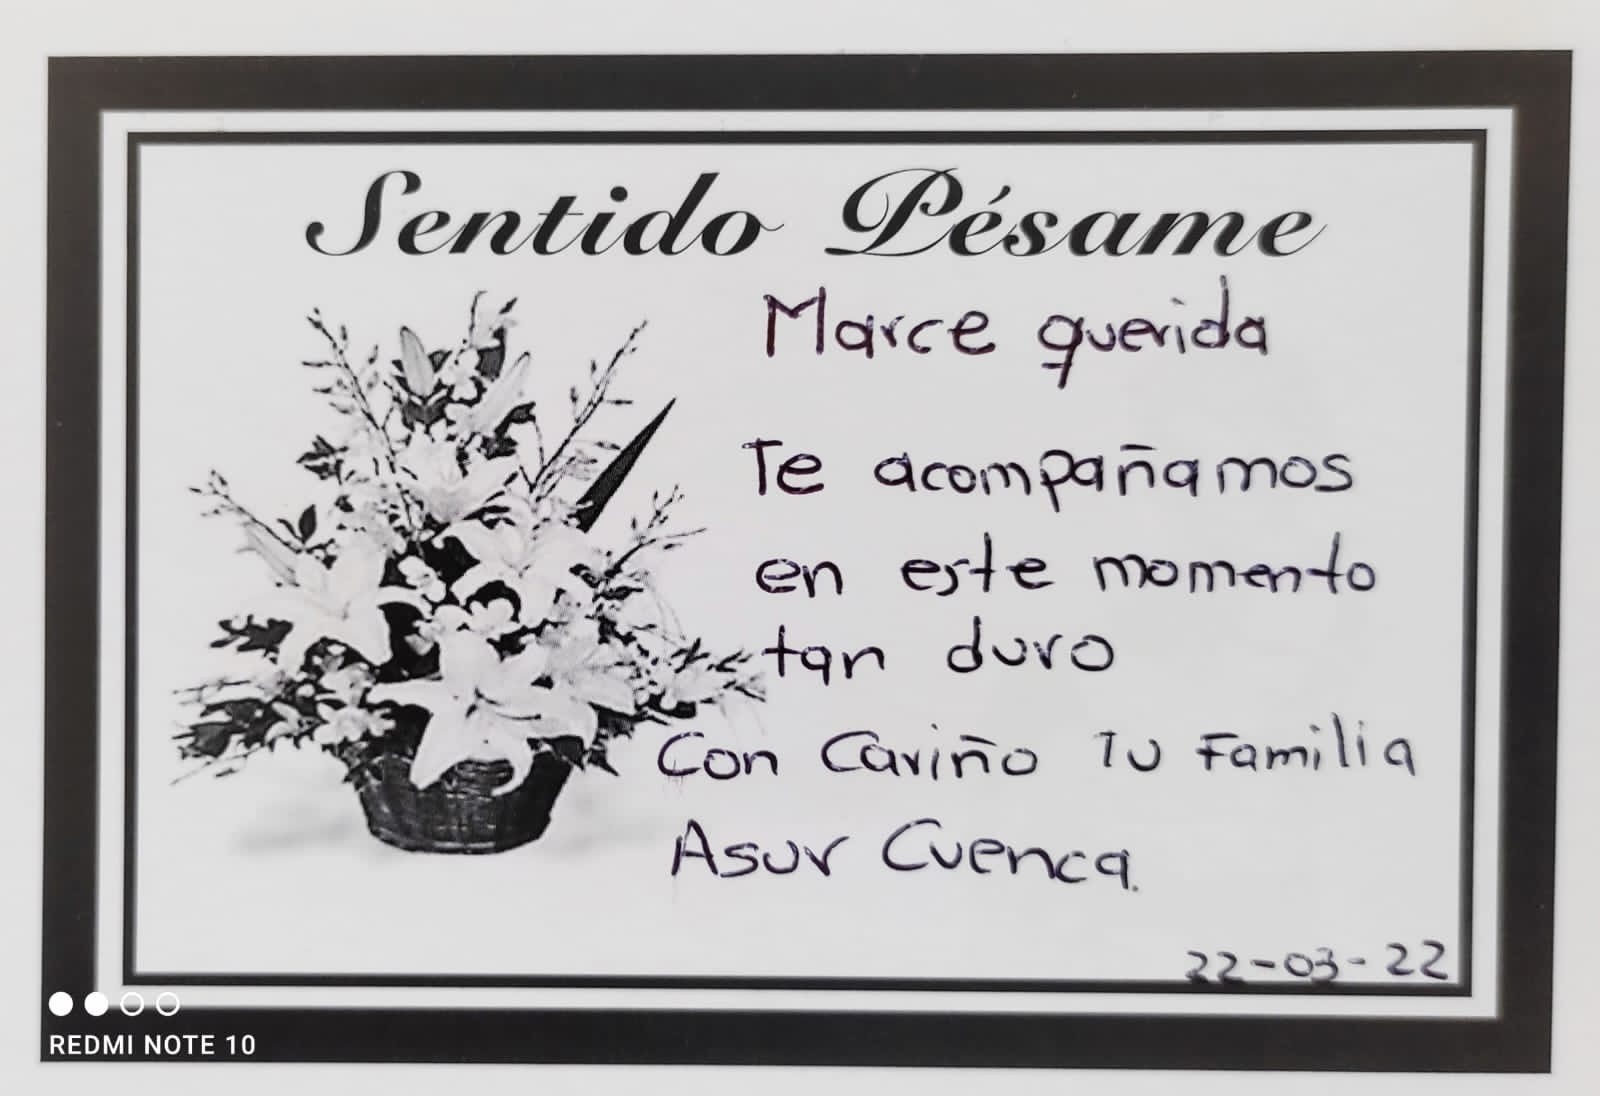 Sentido Pésame
Marce querida
Te acompañamos
en este momento
tan duro
Con Cariño Tu Familia
Asur Cuenca.
22-03-22
REDMI NOTE 10